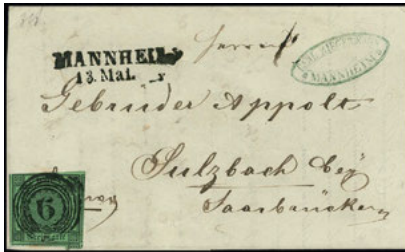 MANNHEIM
13. Mai.
Herren
MANNHEIM
Gebrüder Appolt
Sulzbach bey
Saarbrücken
6